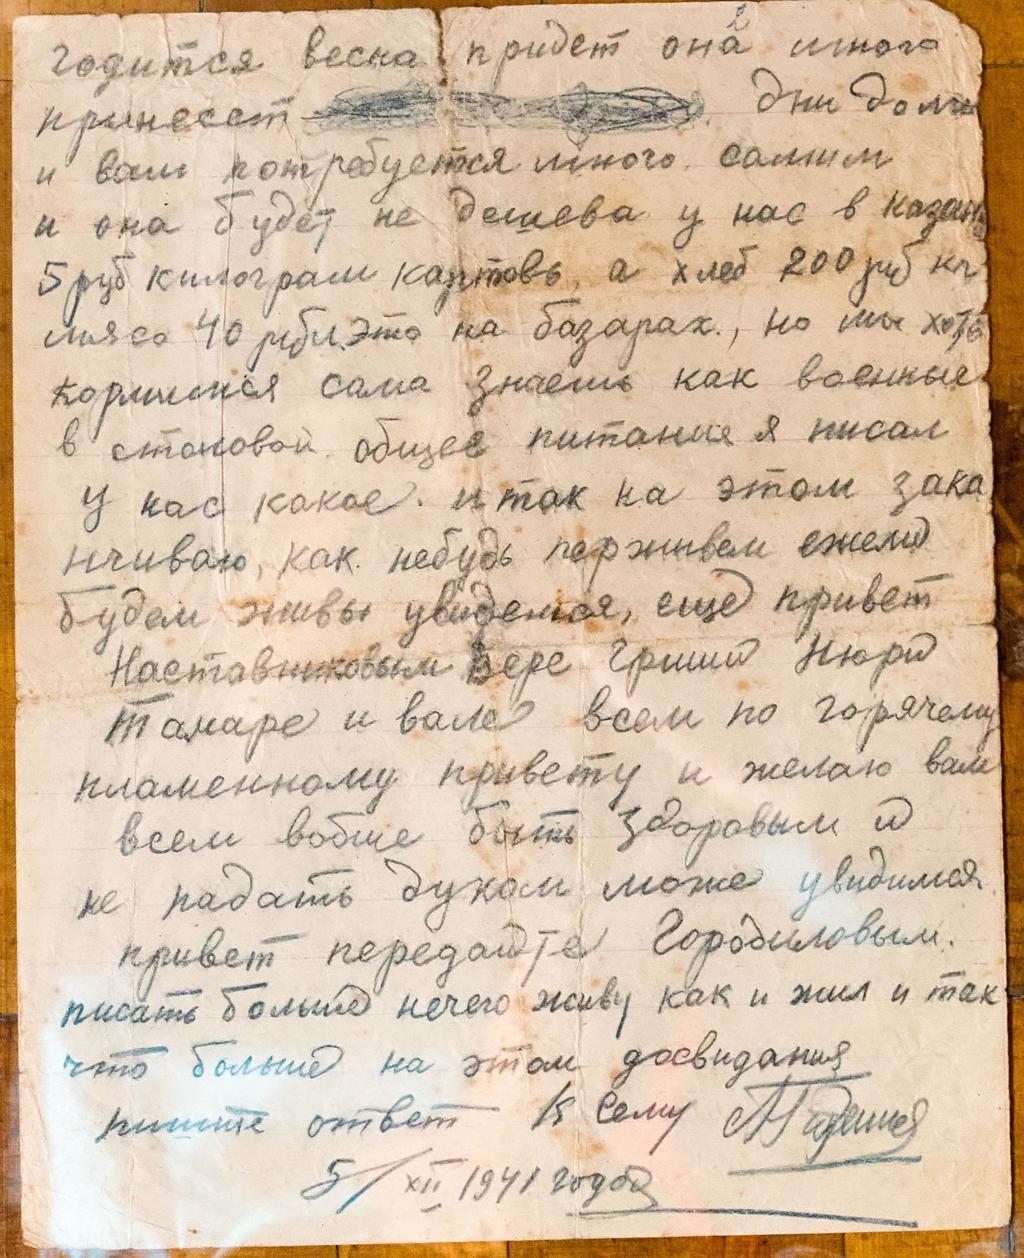 2
годится весна придет она много
принесет дни долги
и вам потребуется много самим
и она будет не дешева у нас в казани
5 руб килограм картовь, а хлеб 200 руб кг
мясо 40 рубл. это на базарах., но мы хоть
кормимся сама знаешь как военные
в столовой общее питание я писал
у нас какое. итак на этом зака
нчиваю, как небудь перживем ежели
будем живы увидемся, еще привет
Наставниковым Вере Гриши Нюри
Тамаре и вале всем по горячему
пламенному привету и желаю вам
всем вобше быть здоровым и
не падать духом може увидимся.
привет передайте Городиловым.
писать больше нечего живу как и жил и так
что больше на этом досвидания
пишите ответ К сему
5/XII 1941 года